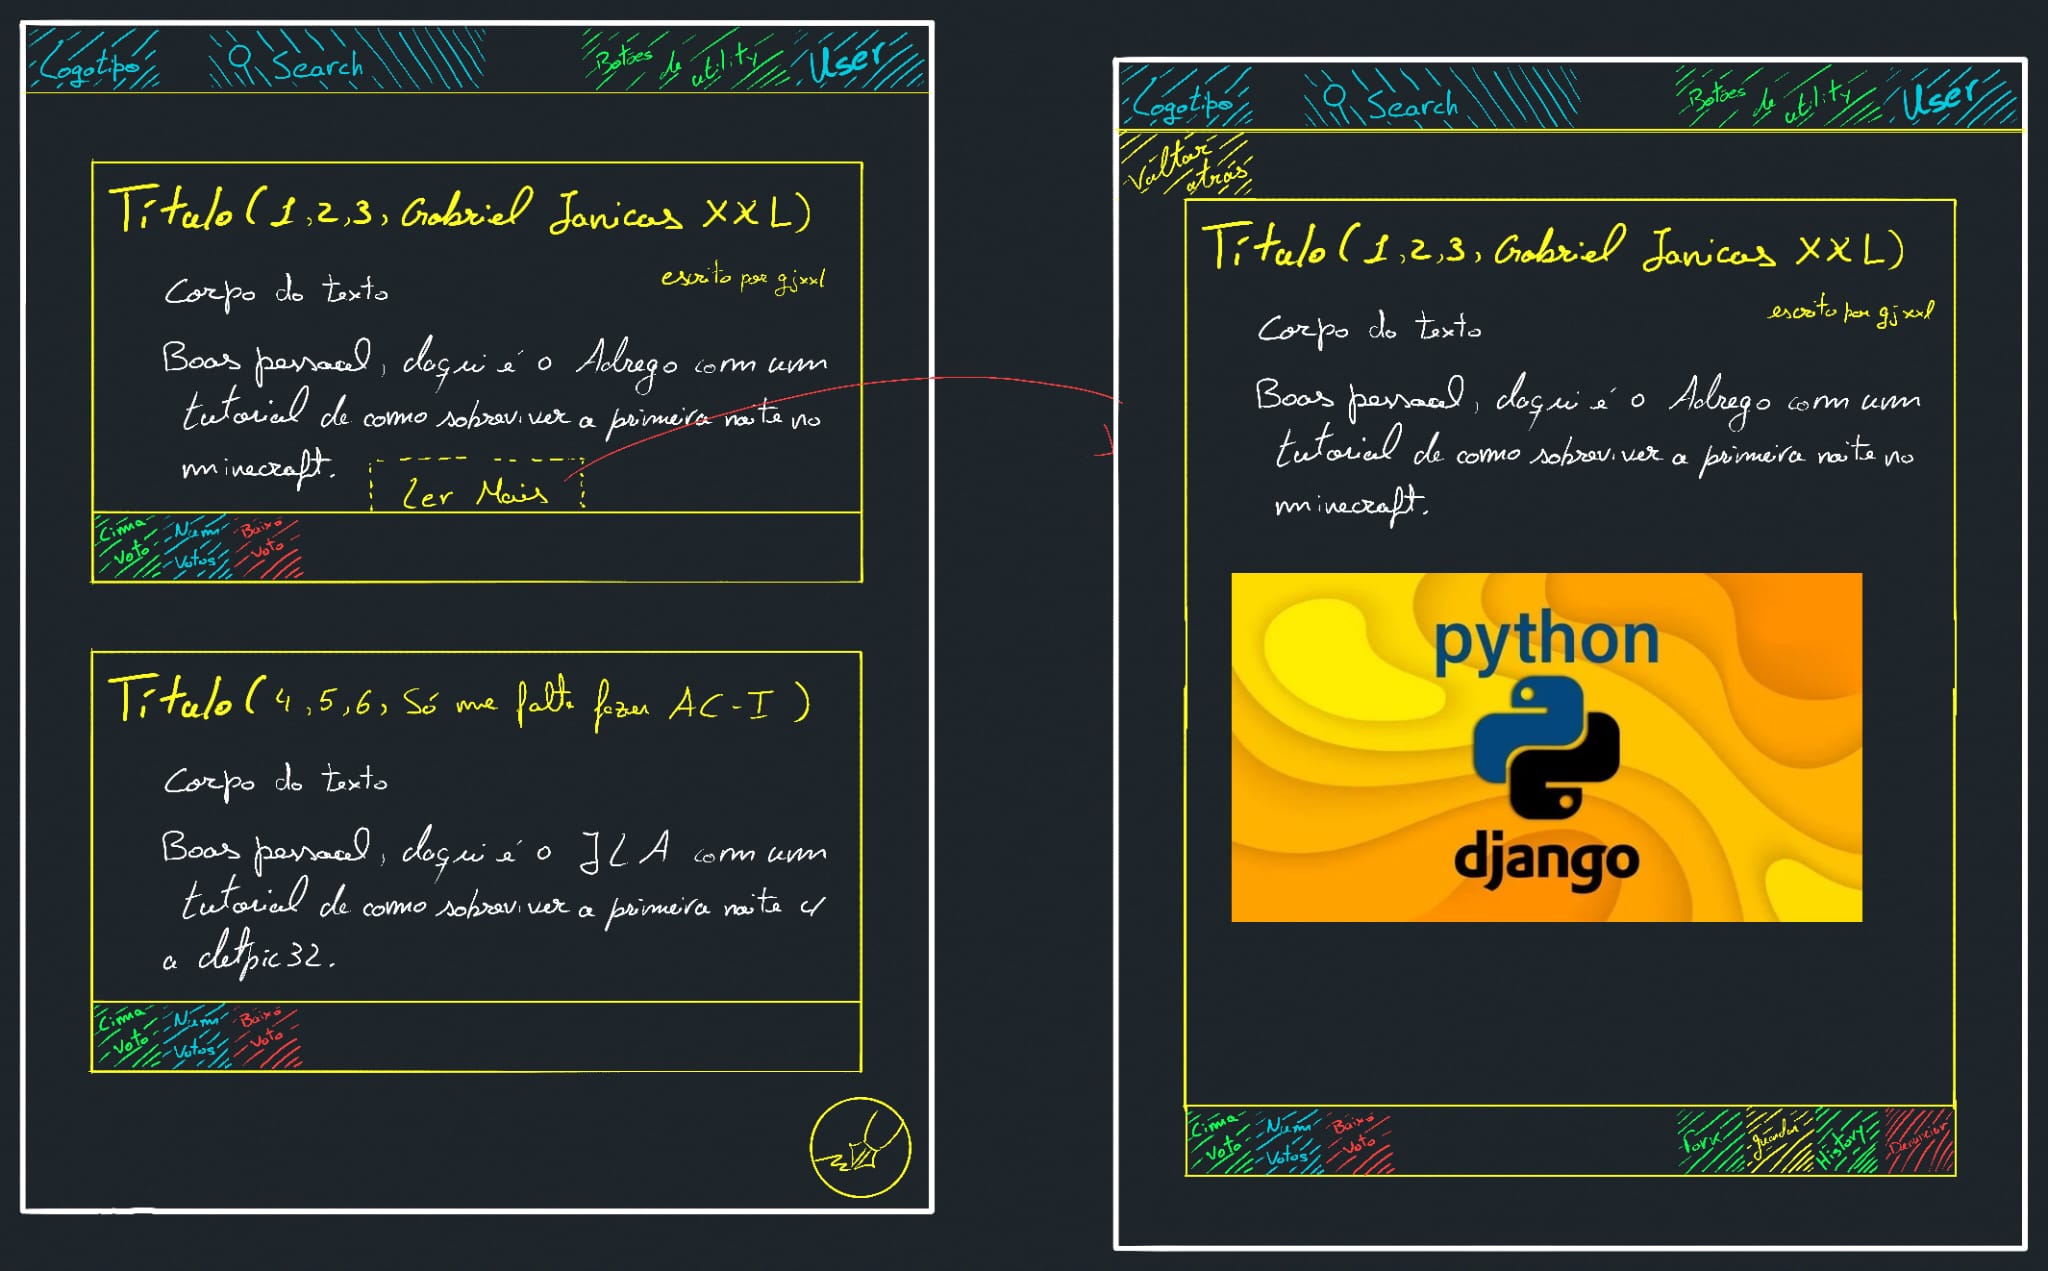 Logotipo Search Botões de utility User
Título (1,2,3, Gabriel Janicas XXL)
escrito por gjxxl
Corpo do texto
Boas pessoal, daqui é o Adrego com um
tutorial de como sobreviver a primeira noite no
minecraft.
Ler Mais
Cima Voto Num Votos Baixo Voto
Título (4,5,6, Só me falta fazer AC-I)
Corpo do texto
Boas pessoal, daqui é o JLA com um
tutorial de como sobreviver a primeira noite c/
a detpic32.
Cima Voto Num Votos Baixo Voto
Logotipo Search Botões de utility User
Voltar atrás
Título (1,2,3, Gabriel Janicas XXL)
escrito por gjxxl
Corpo do texto
Boas pessoal, daqui é o Adrego com um
tutorial de como sobreviver a primeira noite no
minecraft.
python
django
Cima Voto Num Votos Baixo Voto Fork guardar History Denunciar